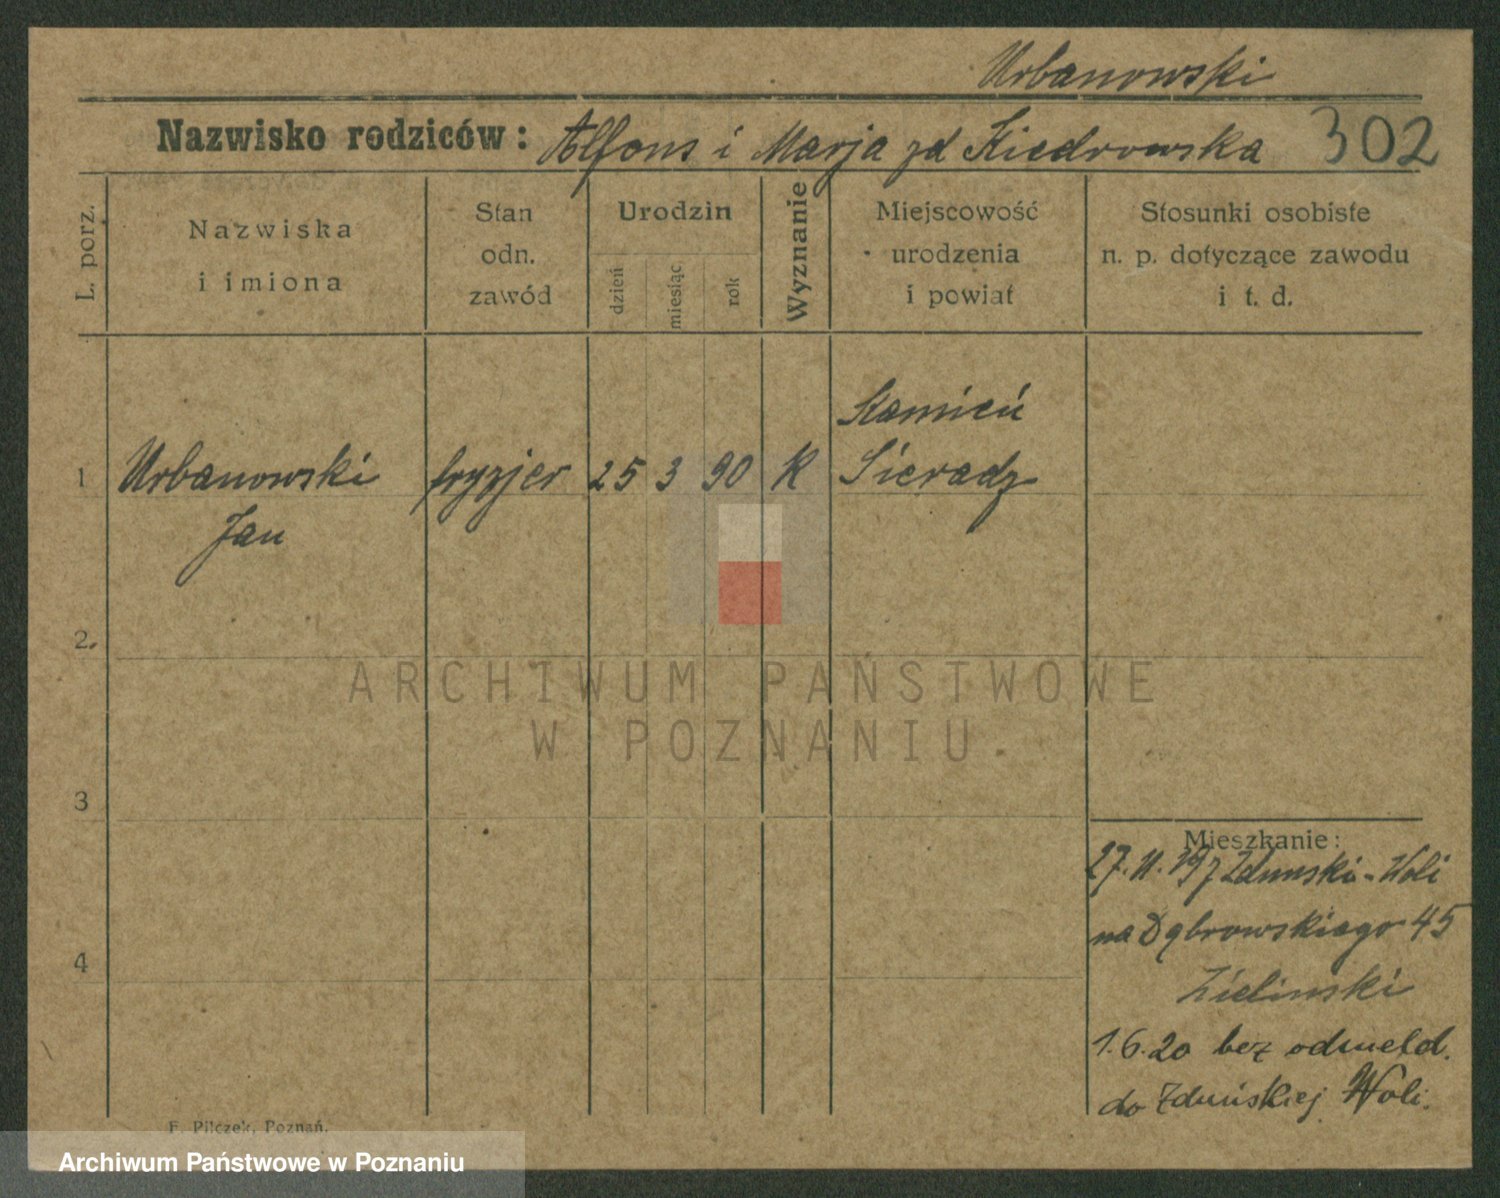 Urbanowski
Nazwisko rodziców: Alfons i Marja zd Kiedrowska 302
L. porz.
Nazwiska
i imiona
Stan
odn.
zawód
Urodzin
dzień
miesiąc
rok
Wyznanie
Miejscowość
urodzenia
i powiat
Stosunki osobiste
n. p. dotyczące zawodu
i t. d.
Kamień
1 Urbanowski fryzjer 25 3 90 K Sieradz
Jan
2.
ARCHIWUM PAŃSTWOWE
W POZNANIU
3
Mieszkanie:
27. 11. 19 z Zdunski-Woli
na Dąbrowskiego 45
4
Zielinski
1.6.20 bez odmeld.
do Zduńskiej Woli.
F. Pilczek, Poznań.
Archiwum Państwowe w Poznaniu